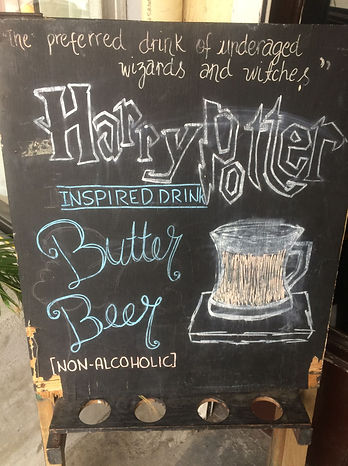 "The preferred drink of underaged
wizards and witches"
Harry Potter
INSPIRED DRINK
Butter
Beer
[NON-ALCOHOLIC]